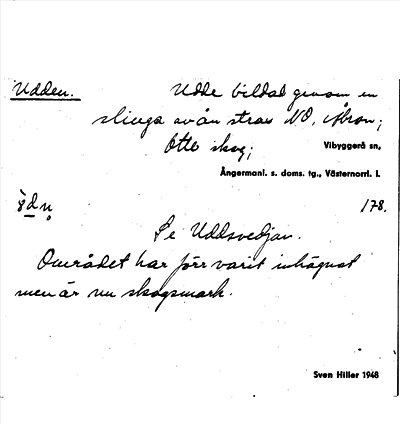 Udden. Udde bildad genom en
slinga av ån strax NO, Åbron;
Otto skog; Vibyggerå sn,
Ångermanl. s. doms. tg., Västernorrl. l.
178.
Se Uddsvedjan.
Området har förr varit inhägnat
men är nu skogsmark.
Sven Hiller 1948